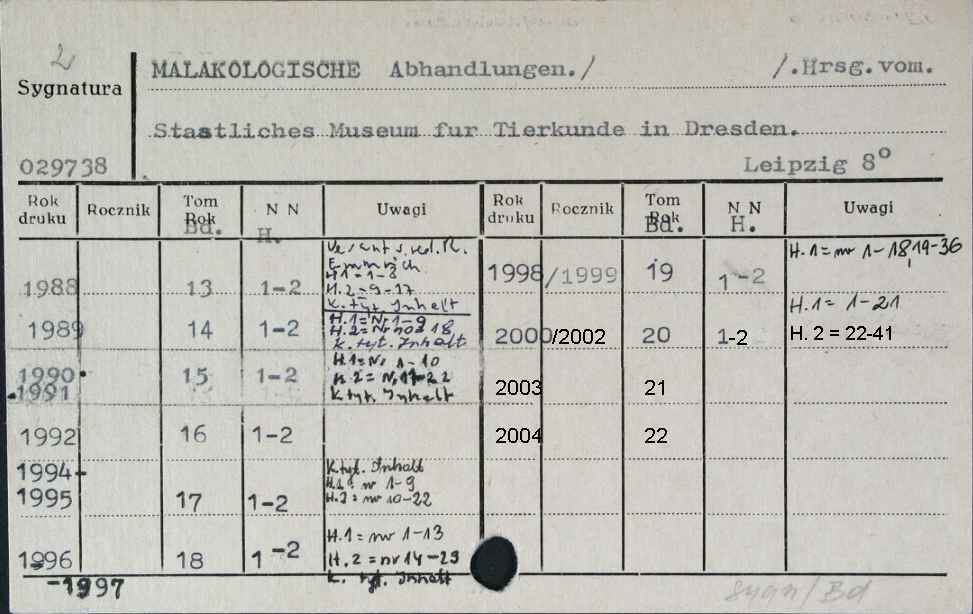 2
Sygnatura
MALAKOLOGISCHE Abhandlungen./ /.Hrsg.vom.
Staatliches Museum fur Tierkunde in Dresden.
029738 Leipzig 8°
Rok druku Rocznik Tom Rok Bd. N N H. Uwagi Rok druku Rocznik Tom Rok Bd. N N H. Uwagi
1988 13 1-2
H.1=1-8
H.2=9-17
K. tyt. Inhalt
1989 14 1-2
H.1=Nr 1-9
H.2=Nr 10-18
K. tyt. Inhalt
1990
1991 15 1-2
H.1=Nr 1-10
H.2=Nr 11-22
K tyt. Inhalt
1992 16 1-2
1994-
1995 17 1-2
K. tyt. Inhalt
H.1= nr 1-9
H.2= nr 10-22
1996
-1997 18 1-2
H.1= nr 1-13
H.2=nr 14-29
K. tyt. Inhalt
1998/1999 19 1-2 H.1=nr 1-18, 19-36
2000/2002 20 1-2
H.1= 1-21
H. 2 = 22-41
2003 21
2004 22